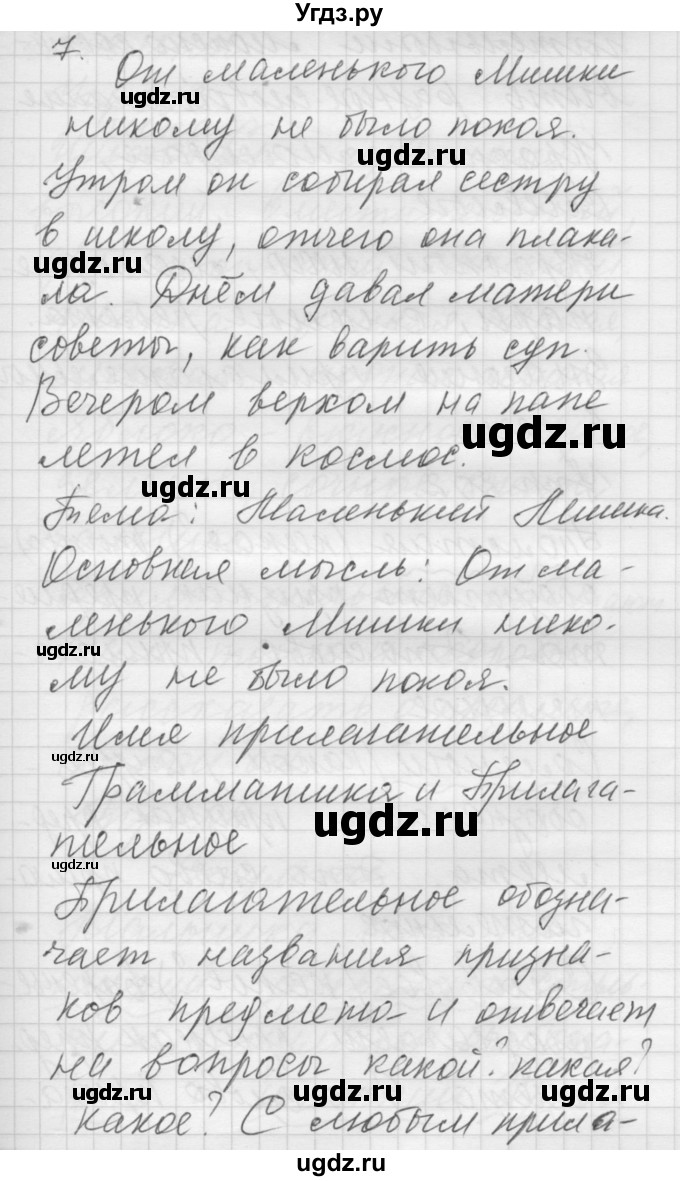 Угдз.ру
7.
От маленького Мишки
ugdz.ru
никому не было покоя.
ugdz.ru
Утром он собирал сестру
в школу, отчего она плака-
ugdz.ru
ла. Днём давал матери
советы, как варить суп.
Вечером верхом на папе
ugdz.ru
летел в космос.
ugdz.ru
Тема: Маленький Мишка.
Основная мысль: От ма-
ленького Мишки нико-
ugdz.ru
му не было покоя.
Имя прилагательное
ugdz.ru
Грамматика и Прилага-
ugdz.ru
тельное
ugdz.ru
Прилагательное обозна-
чает названия призна-
ков предмето- и отвечает
на вопросы какой? какая?
ugdz.ru
ugdz.ru
какое? С любым прила-
ugdz.ru